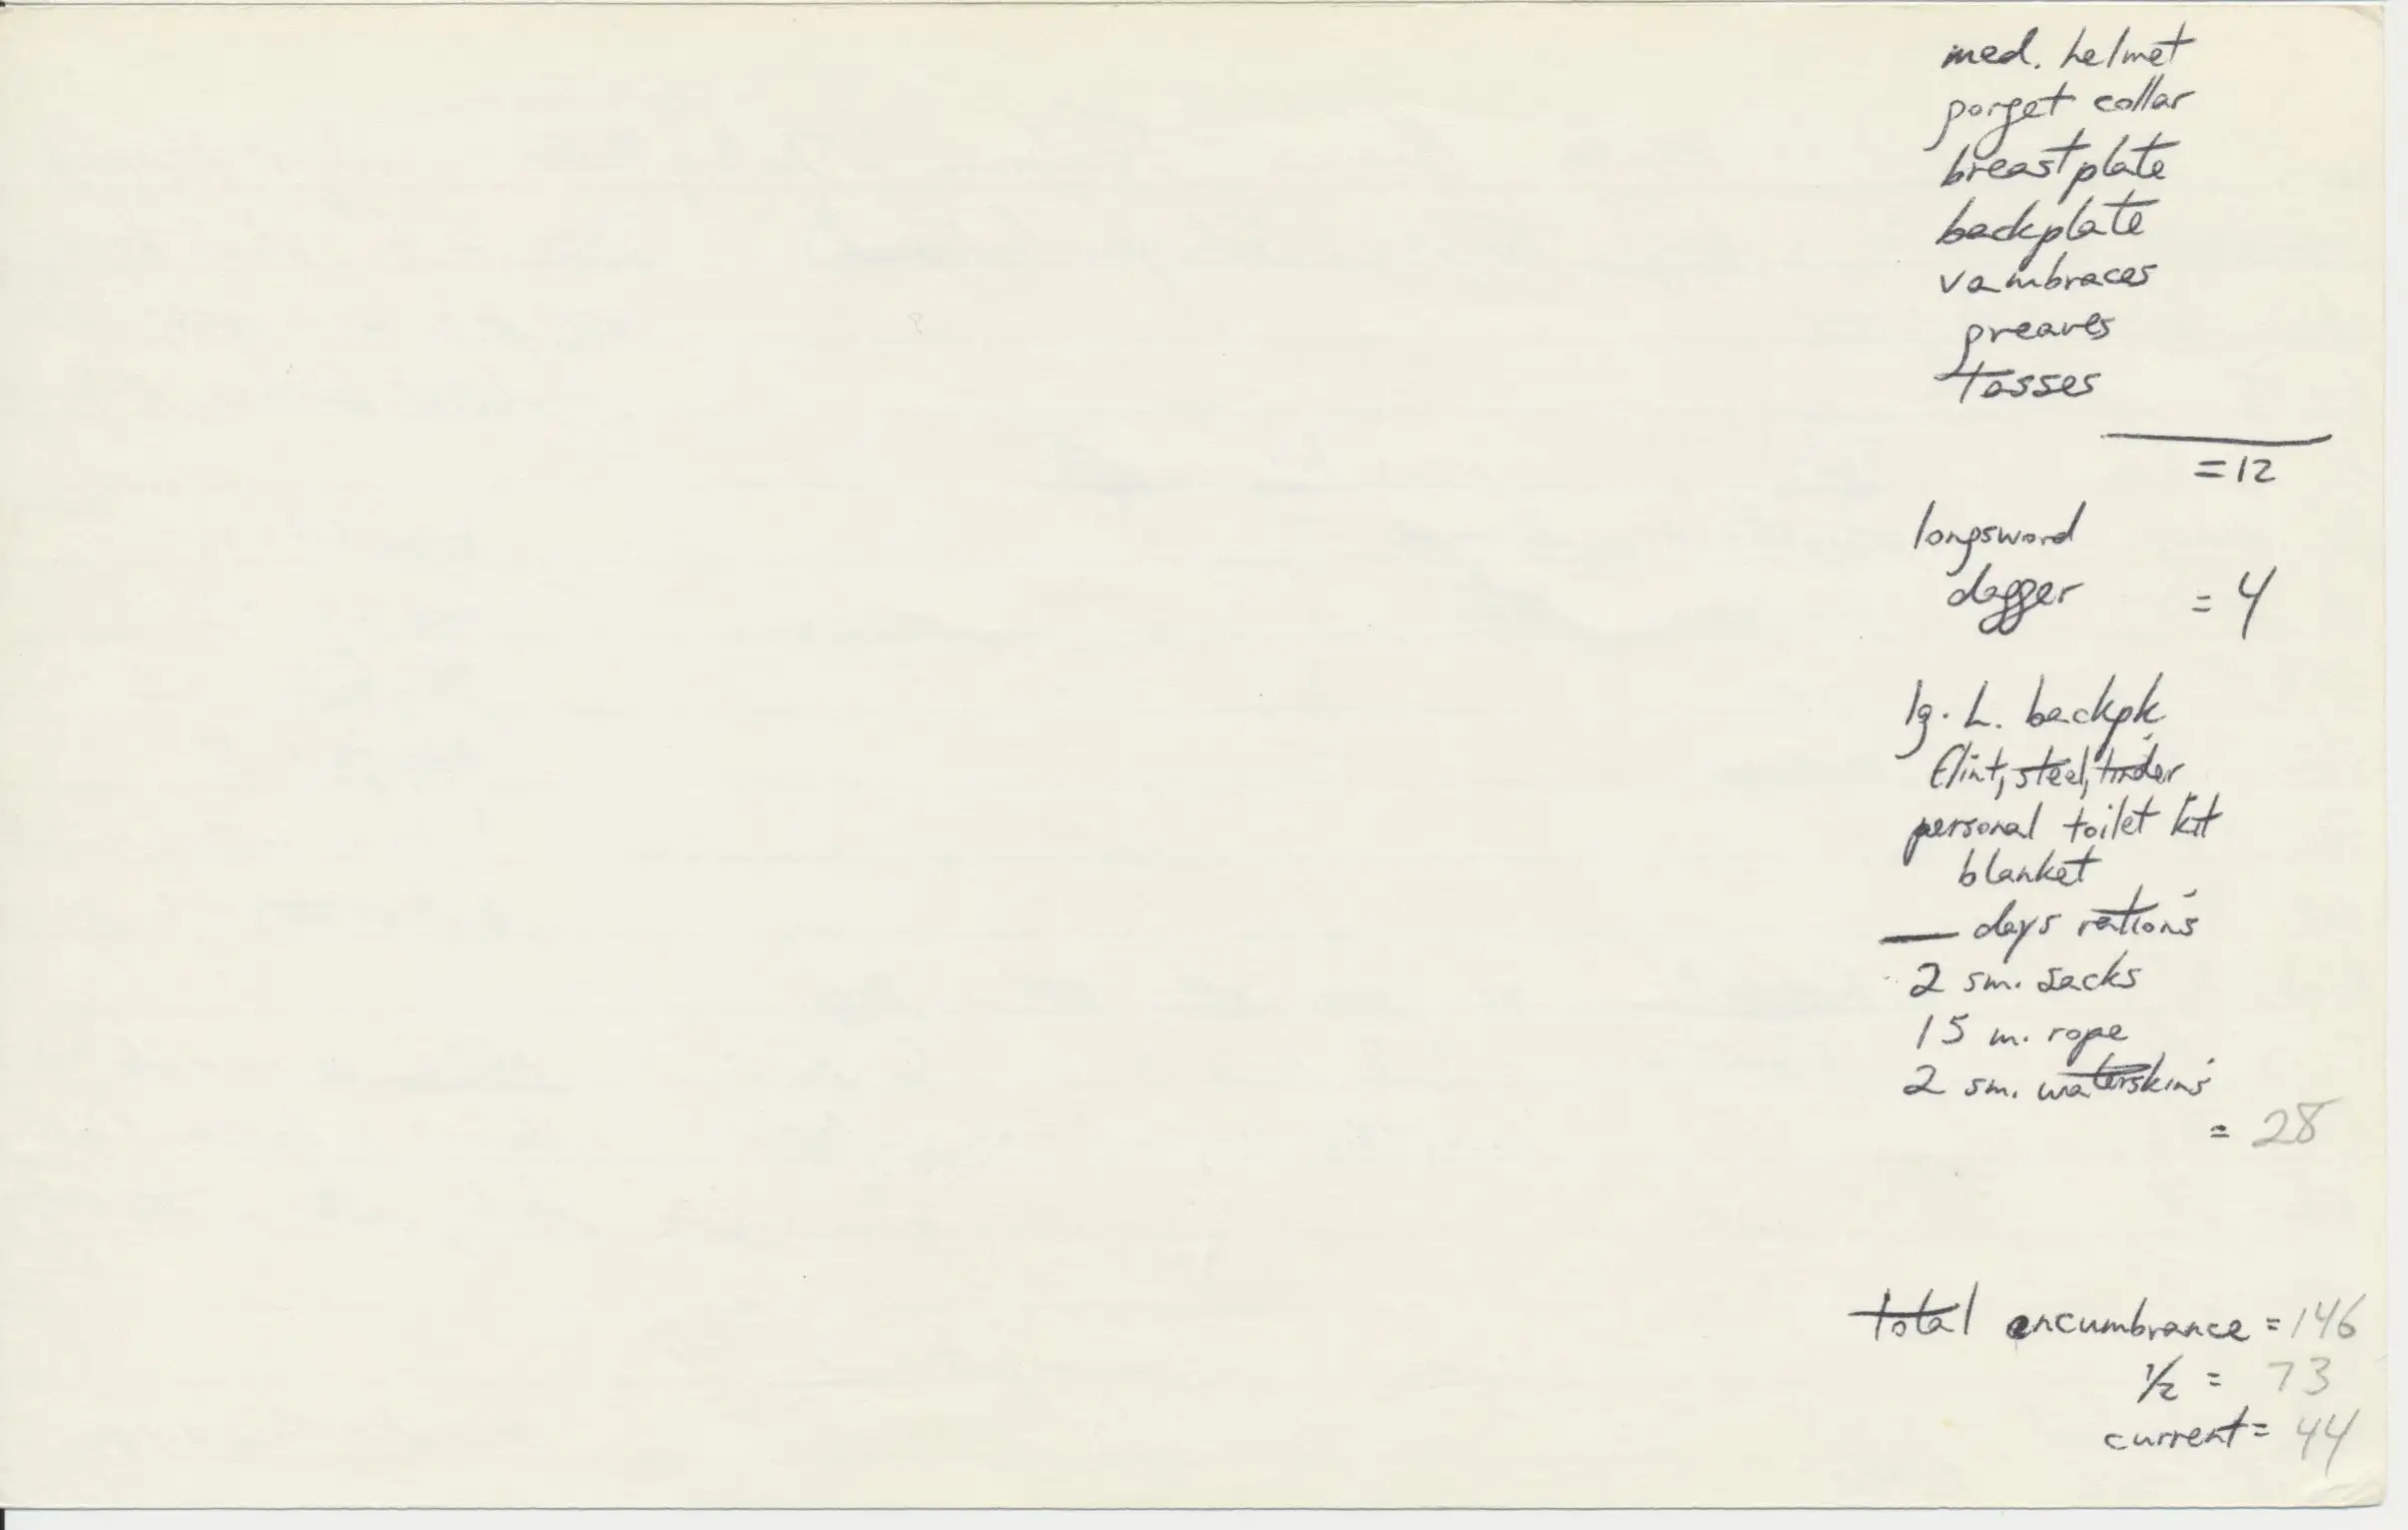 med. helmet
gorget collar
breastplate
backplate
vambraces
greaves
tasses
= 12
longsword
dagger = 4
lg. L. backpk.
flint, steel, tinder
personal toilet kit
blanket
— days rations
2 sm. sacks
15 m. rope
2 sm. waterskins
= 28
total encumbrance = 146
1/2 = 73
current = 44